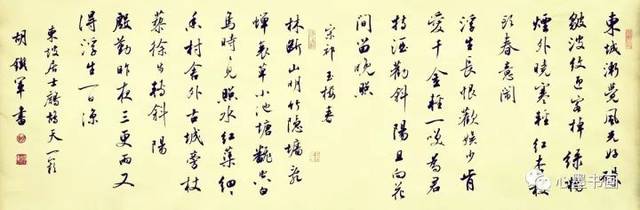 東城漸覺風光好縠
皺波紋迎客棹綠楊
煙外曉寒輕紅杏枝
頭春意鬧
浮生長恨歡娛少肯
愛千金輕一笑為君
持酒勸斜陽且向花
間留晚照
宋祁玉樓春
林斷山明竹隱墻亂
蟬衰草小池塘翻空白
鳥時々見照水紅蕖細々
香村舍外古城旁杖
藜徐步轉斜陽
殷勤昨夜三更雨又
得浮生一日涼
東坡居士鷓鴣天一首
胡鐵軍書
心墨书画